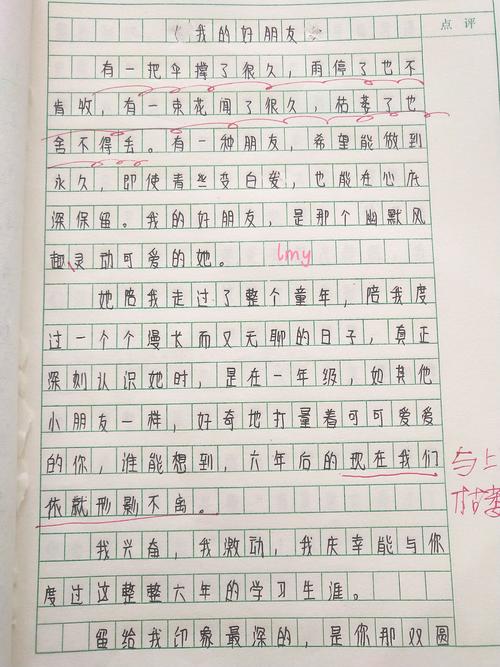 点评
《我的好朋友》
有一把伞撑了很久，雨停了也不
肯收，有一束花闻了很久，枯萎了也
舍不得丢。有一种朋友，希望能做到
永久，即使青丝变白发，也能在心底
深保留。我的好朋友，是那个幽默风
趣、灵动可爱的她。 lmy
她陪我走过了整个童年，陪我度
过一个个漫长而又无聊的日子，真正
深刻认识她时，是在一年级，如其他
小朋友一样，好奇地打量着可可爱爱
的你，谁能想到，六年后的现在我们
依就形影不离。
与上
枯萎
我兴奋，我激动，我庆幸能与你
度过这整整六年的学习生涯。
留给我印象最深的，是你那双圆